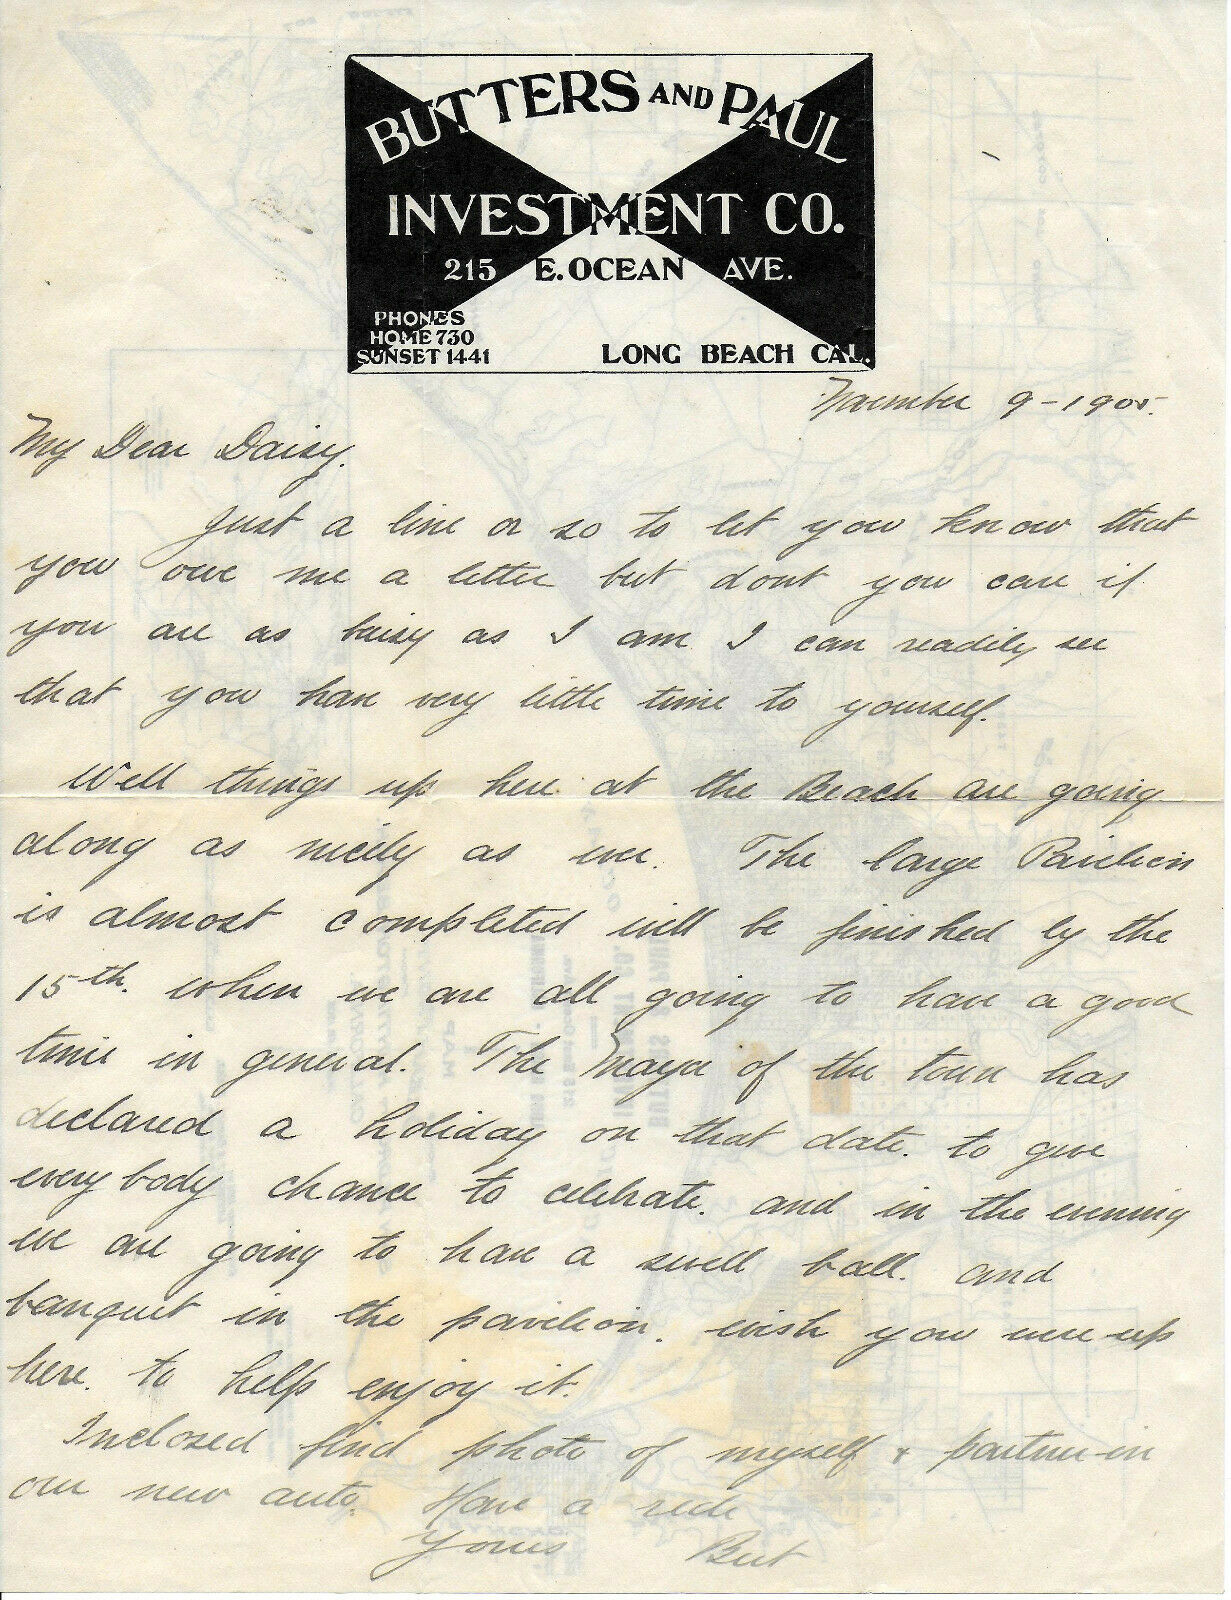 BUTTERS AND PAUL
INVESTMENT CO.
215 E. OCEAN AVE.
PHONES
HOME 730
SUNSET 1441
LONG BEACH CAL.
November 9-1905.
My Dear Daisy.
Just a line or so to let you know that
you owe me a letter but dont you care if
you are as buisy as I am I can readily see
that you have very little time to yourself.
Well things up here at the Beach are going
along as nicely as ever. The large Pavilion
is almost completed will be finished by the
15th. when we are all going to have a good
time in general. The Mayor of the town has
declared a holiday on that date. to give
everybody chance to celebrate. and in the evening
we are going to have a swell ball. and
banquet in the pavilion. wish you were up
here. to help enjoy it.
Inclosed find photo of myself & partner in
our new auto. Have a ride
Yours Bert